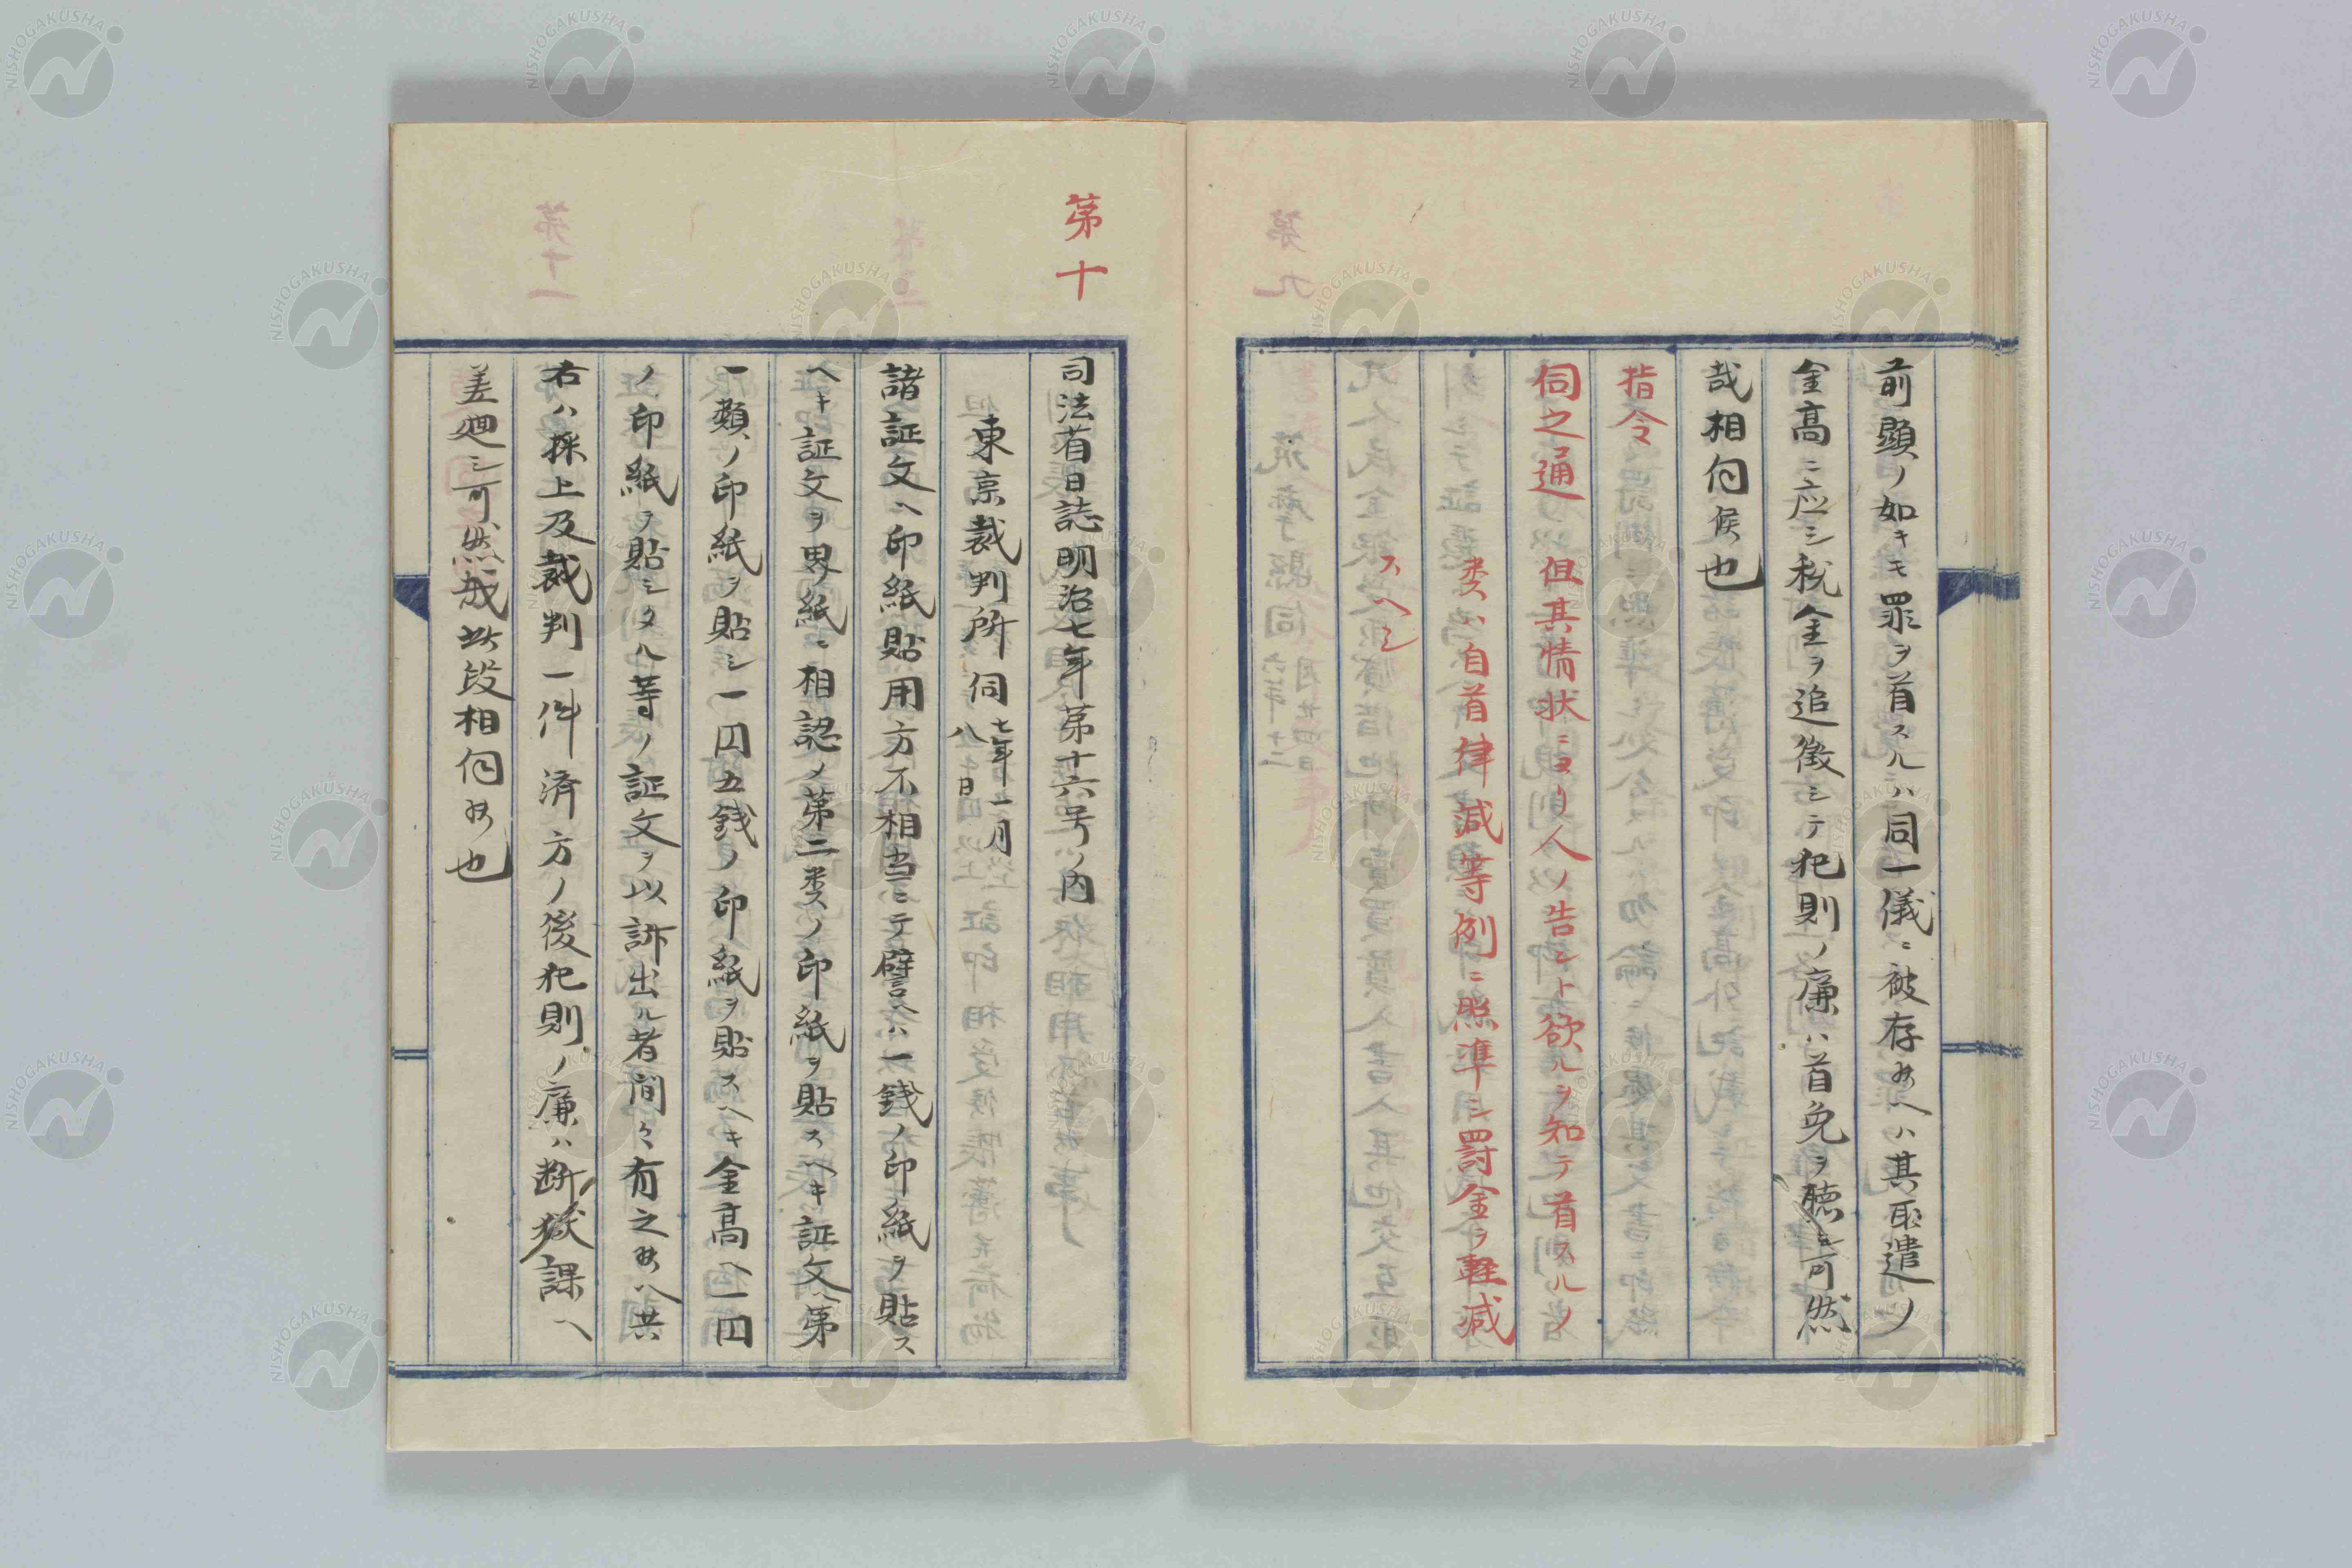 前顕ノ如キモ罪ヲ首スルハ同一儀ニ被存候ヘハ其取遣ノ
金高ニ応シ税金ヲ追徴シテ犯則ノ廉ハ首免ヲ聴シ可然
哉相伺候也
指令
伺之通 但其情状ニヨリ人ノ告ント欲ルヲ知テ首スルノ
类ハ自首律減等例ニ照準シ罰金ヲ軽減
スヘシ
第十
司法省日誌明治七年第十六号ノ内
東京裁判所伺 七年一月八日
諸証文ヘ印紙貼用方不相当ニテ譬ヘハ一銭ノ印紙ヲ貼ス
ヘキ証文ヲ界紙ニ相認ノ第二类ノ印紙ヲ貼スヘキ証文ヘ第
一類ノ印紙ヲ貼シ一円五銭ノ印紙ヲ貼スヘキ金高ヘ一円
ノ印紙ヲ貼シタル等ノ証文ヲ以訴出ル者間々有之候ヘ共
右ハ採上及裁判一件済方ノ後犯則ノ廉ハ断獄課ヘ
差廻シ可然哉此段相伺候也
NISHOGAKUSHA